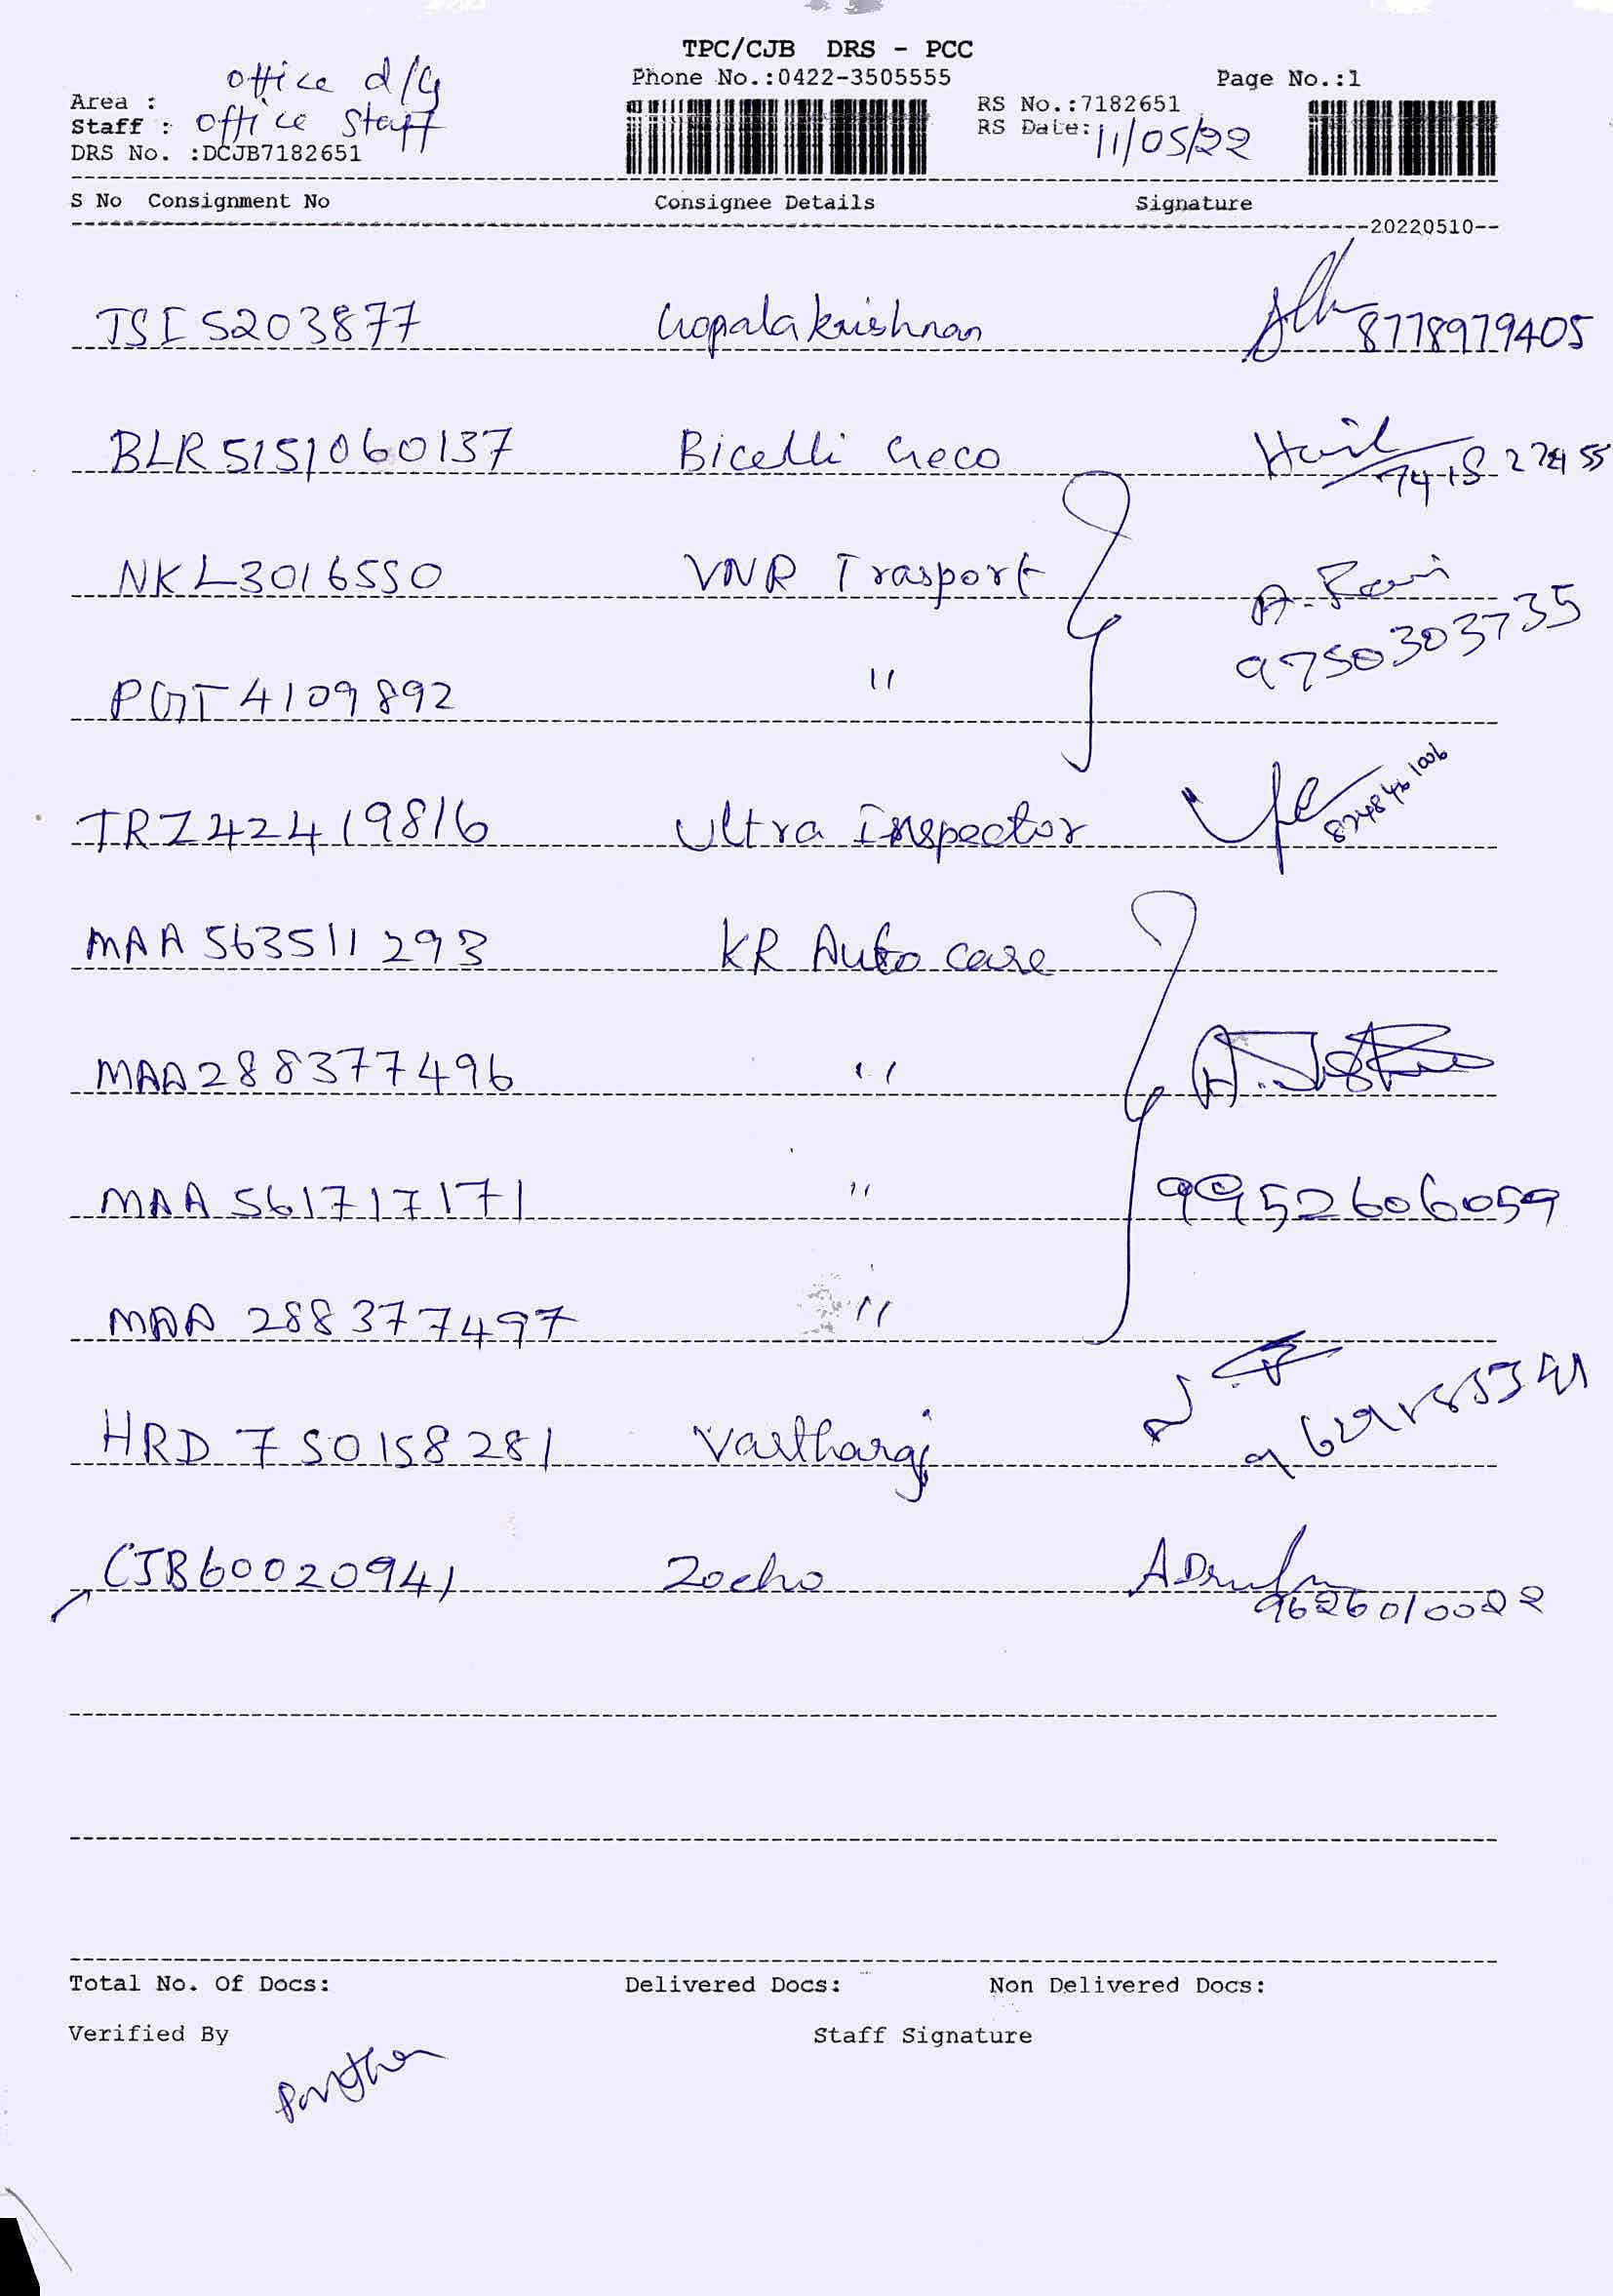 TPC/CJB DRS - PCC
office d/y
Phone No.:0422-3505555
Page No.:1
Area :
RS No.:7182651
Staff : office staff
RS Date: 11/05/22
DRS No. :DCJB7182651
S No Consignment No Consignee Details Signature
20220510
JSI 5203877 Gopala krishnan 8778979405
BLR 5151060137 Bicelli Greco
NKL3016550 VNR Trasport A. Ravi
9750303735
PGT 4109892 "
TRZ42419816 Ultra Inspector 8248461006
MAA 563511293 KR Auto care
MAA288377496 "
MAA 561717171 " 9952606059
MAA 288377497 "
HRD 750158281 Vartharaj
CJB60020941 Zocho
9626010022
Total No. Of Docs: Delivered Docs: Non Delivered Docs:
Verified By Staff Signature